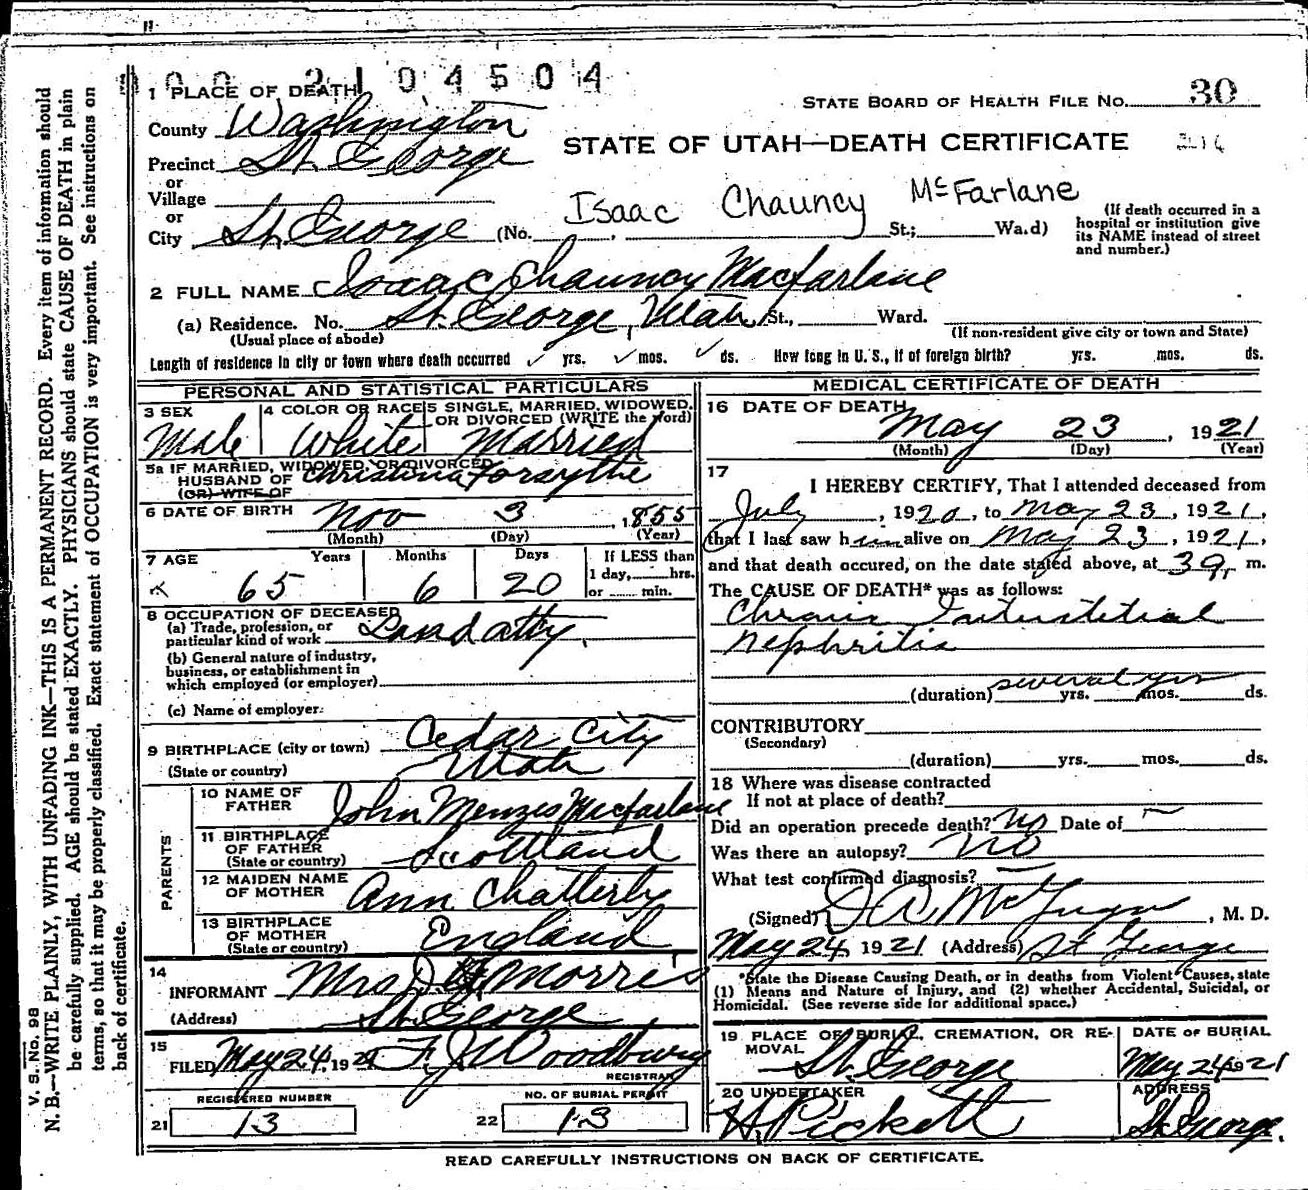 2104504
1 PLACE OF DEATH
STATE BOARD OF HEALTH FILE NO. 30
County Washington
STATE OF UTAH—DEATH CERTIFICATE
Precinct St. George
or
Village
or
City St. George (No. , St.; Wa.d)
Isaac Chauncy McFarlane
(If death occurred in a
hospital or institution give
its NAME instead of street
and number.)
2 FULL NAME Isaac Chauncy Macfarlane
(a) Residence. No. St. George, Utah St., Ward.
(Usual place of abode)
(If non-resident give city or town and State)
Length of residence in city or town where death occurred yrs. mos. ds. How long in U. S., if of foreign birth? yrs. mos. ds.
PERSONAL AND STATISTICAL PARTICULARS
3 SEX
Male
4 COLOR OR RACE
White
5 SINGLE, MARRIED, WIDOWED,
OR DIVORCED (WRITE the word)
Married
5a IF MARRIED, WIDOWED, OR DIVORCED
HUSBAND OF Christina Forsythe
(OR) WIFE OF
6 DATE OF BIRTH Nov 3, 1855
(Month) (Day) (Year)
7 AGE Years Months Days
65 6 20
If LESS than
1 day, hrs.
or min.
8 OCCUPATION OF DECEASED
(a) Trade, profession, or
particular kind of work Land atty.
(b) General nature of industry,
business, or establishment in
which employed (or employer)
(c) Name of employer:
9 BIRTHPLACE (city or town) Cedar City
(State or country) Utah
PARENTS
10 NAME OF
FATHER John Menzes Macfarlane
11 BIRTHPLACE
OF FATHER
(State or country) Scottland
12 MAIDEN NAME
OF MOTHER Ann Chatterly
13 BIRTHPLACE
OF MOTHER
(State or country) England
14
INFORMANT Mrs J. H. Morris
(Address) St. George
15
FILED May 24, 1921 F. J. Woodbury
REGISTRAR
REGISTERED NUMBER
21 13
NO. OF BURIAL PERMIT
22 13
MEDICAL CERTIFICATE OF DEATH
16 DATE OF DEATH
May 23, 1921
(Month) (Day) (Year)
17
I HEREBY CERTIFY, That I attended deceased from
July, 1920, to May 23, 1921,
that I last saw him alive on May 23, 1921,
and that death occured, on the date stated above, at m.
The CAUSE OF DEATH* was as follows:
Chronic Interstitial
Nephritis
(duration) several yrs yrs. mos. ds.
CONTRIBUTORY
(Secondary)
(duration) yrs. mos. ds.
18 Where was disease contracted
If not at place of death?
Did an operation precede death? No Date of —
Was there an autopsy? No
What test confirmed diagnosis? —
(Signed) , M. D.
May 24 1921 (Address) St George
*State the Disease Causing Death, or in deaths from Violent Causes, state
(1) Means and Nature of Injury, and (2) whether Accidental, Suicidal, or
Homicidal. (See reverse side for additional space.)
19 PLACE OF BURIAL, CREMATION, OR RE-
MOVAL St. George
DATE OF BURIAL
May 24 1921
20 UNDERTAKER
H. Pickett
ADDRESS
St. George.
READ CAREFULLY INSTRUCTIONS ON BACK OF CERTIFICATE.
V. S. No. 98
N. B.—WRITE PLAINLY, WITH UNFADING INK—THIS IS A PERMANENT RECORD. Every item of information should
be carefully supplied. AGE should be stated EXACTLY. PHYSICIANS should state CAUSE OF DEATH in plain
terms, so that it may be properly classified. Exact statement of OCCUPATION is very important. See instructions on
back of certificate.